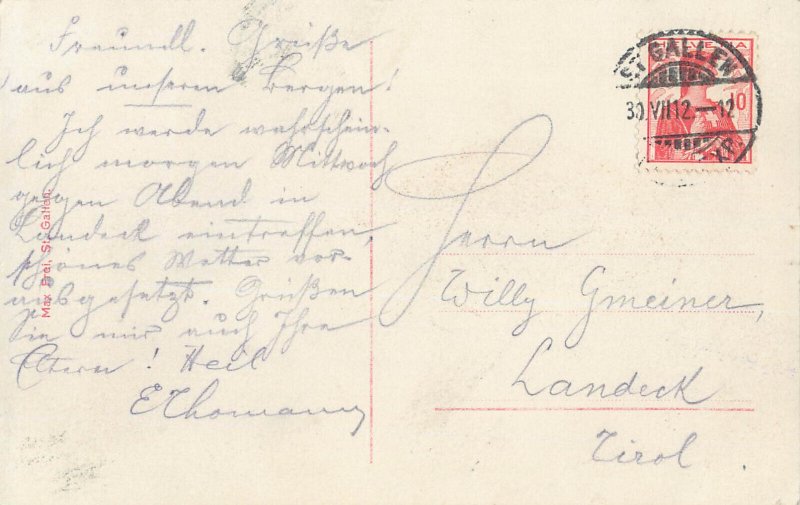 Freundl. Grüße
aus unseren Bergen!
Ich werde wahrschein-
lich morgen Mittwoch
gegen Abend in
Landeck eintreffen,
schönes Wetter vor-
ausgesetzt. Grüßen
Sie mir auch Ihre
Eltern! Heil
EThomann
Max Frei, St. Gallen.
HELVETIA
10
ST. GALLEN
30.VII.12.—12
Herrn
Willy Gmeiner,
Landeck
Tirol